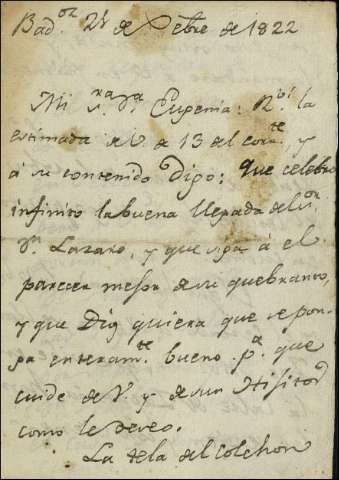 Bad.oz 24 de Febre de 1822
Mi s.ra D.a Eugenia: R.bi la
estimada de V de 13 del corr.te y
á su contenido Digo: que celebro
infinito la buena llegada del S.or
D.n Lazaro, y que siga á el
parecer mejor de su quebranto,
y que Dios quiera que se pon-
ga enteram.te bueno p.a que
cuide de V y de sus Hijitos
como le deveo.
La tela del colchon